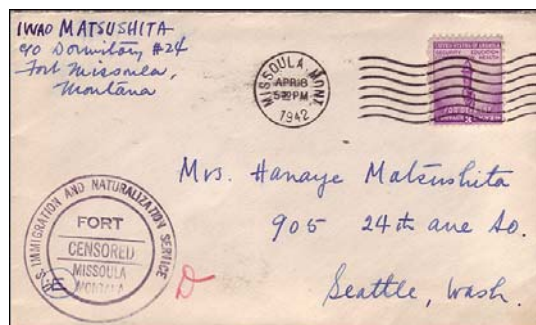 IWAO MATSUSHITA
c/o Dormitory #24
Fort Missoula,
Montana
MISSOULA, MONT.
APR 18
5 PM
1942
SECURITY EDUCATION
HEALTH
FOR DEFENSE
Mrs. Hanaye Matsushita
905 24th ave So.
Seattle, Wash.
U.S. IMMIGRATION AND NATURALIZATION SERVICE
FORT
CENSORED
MISSOULA
MONTANA
E
D